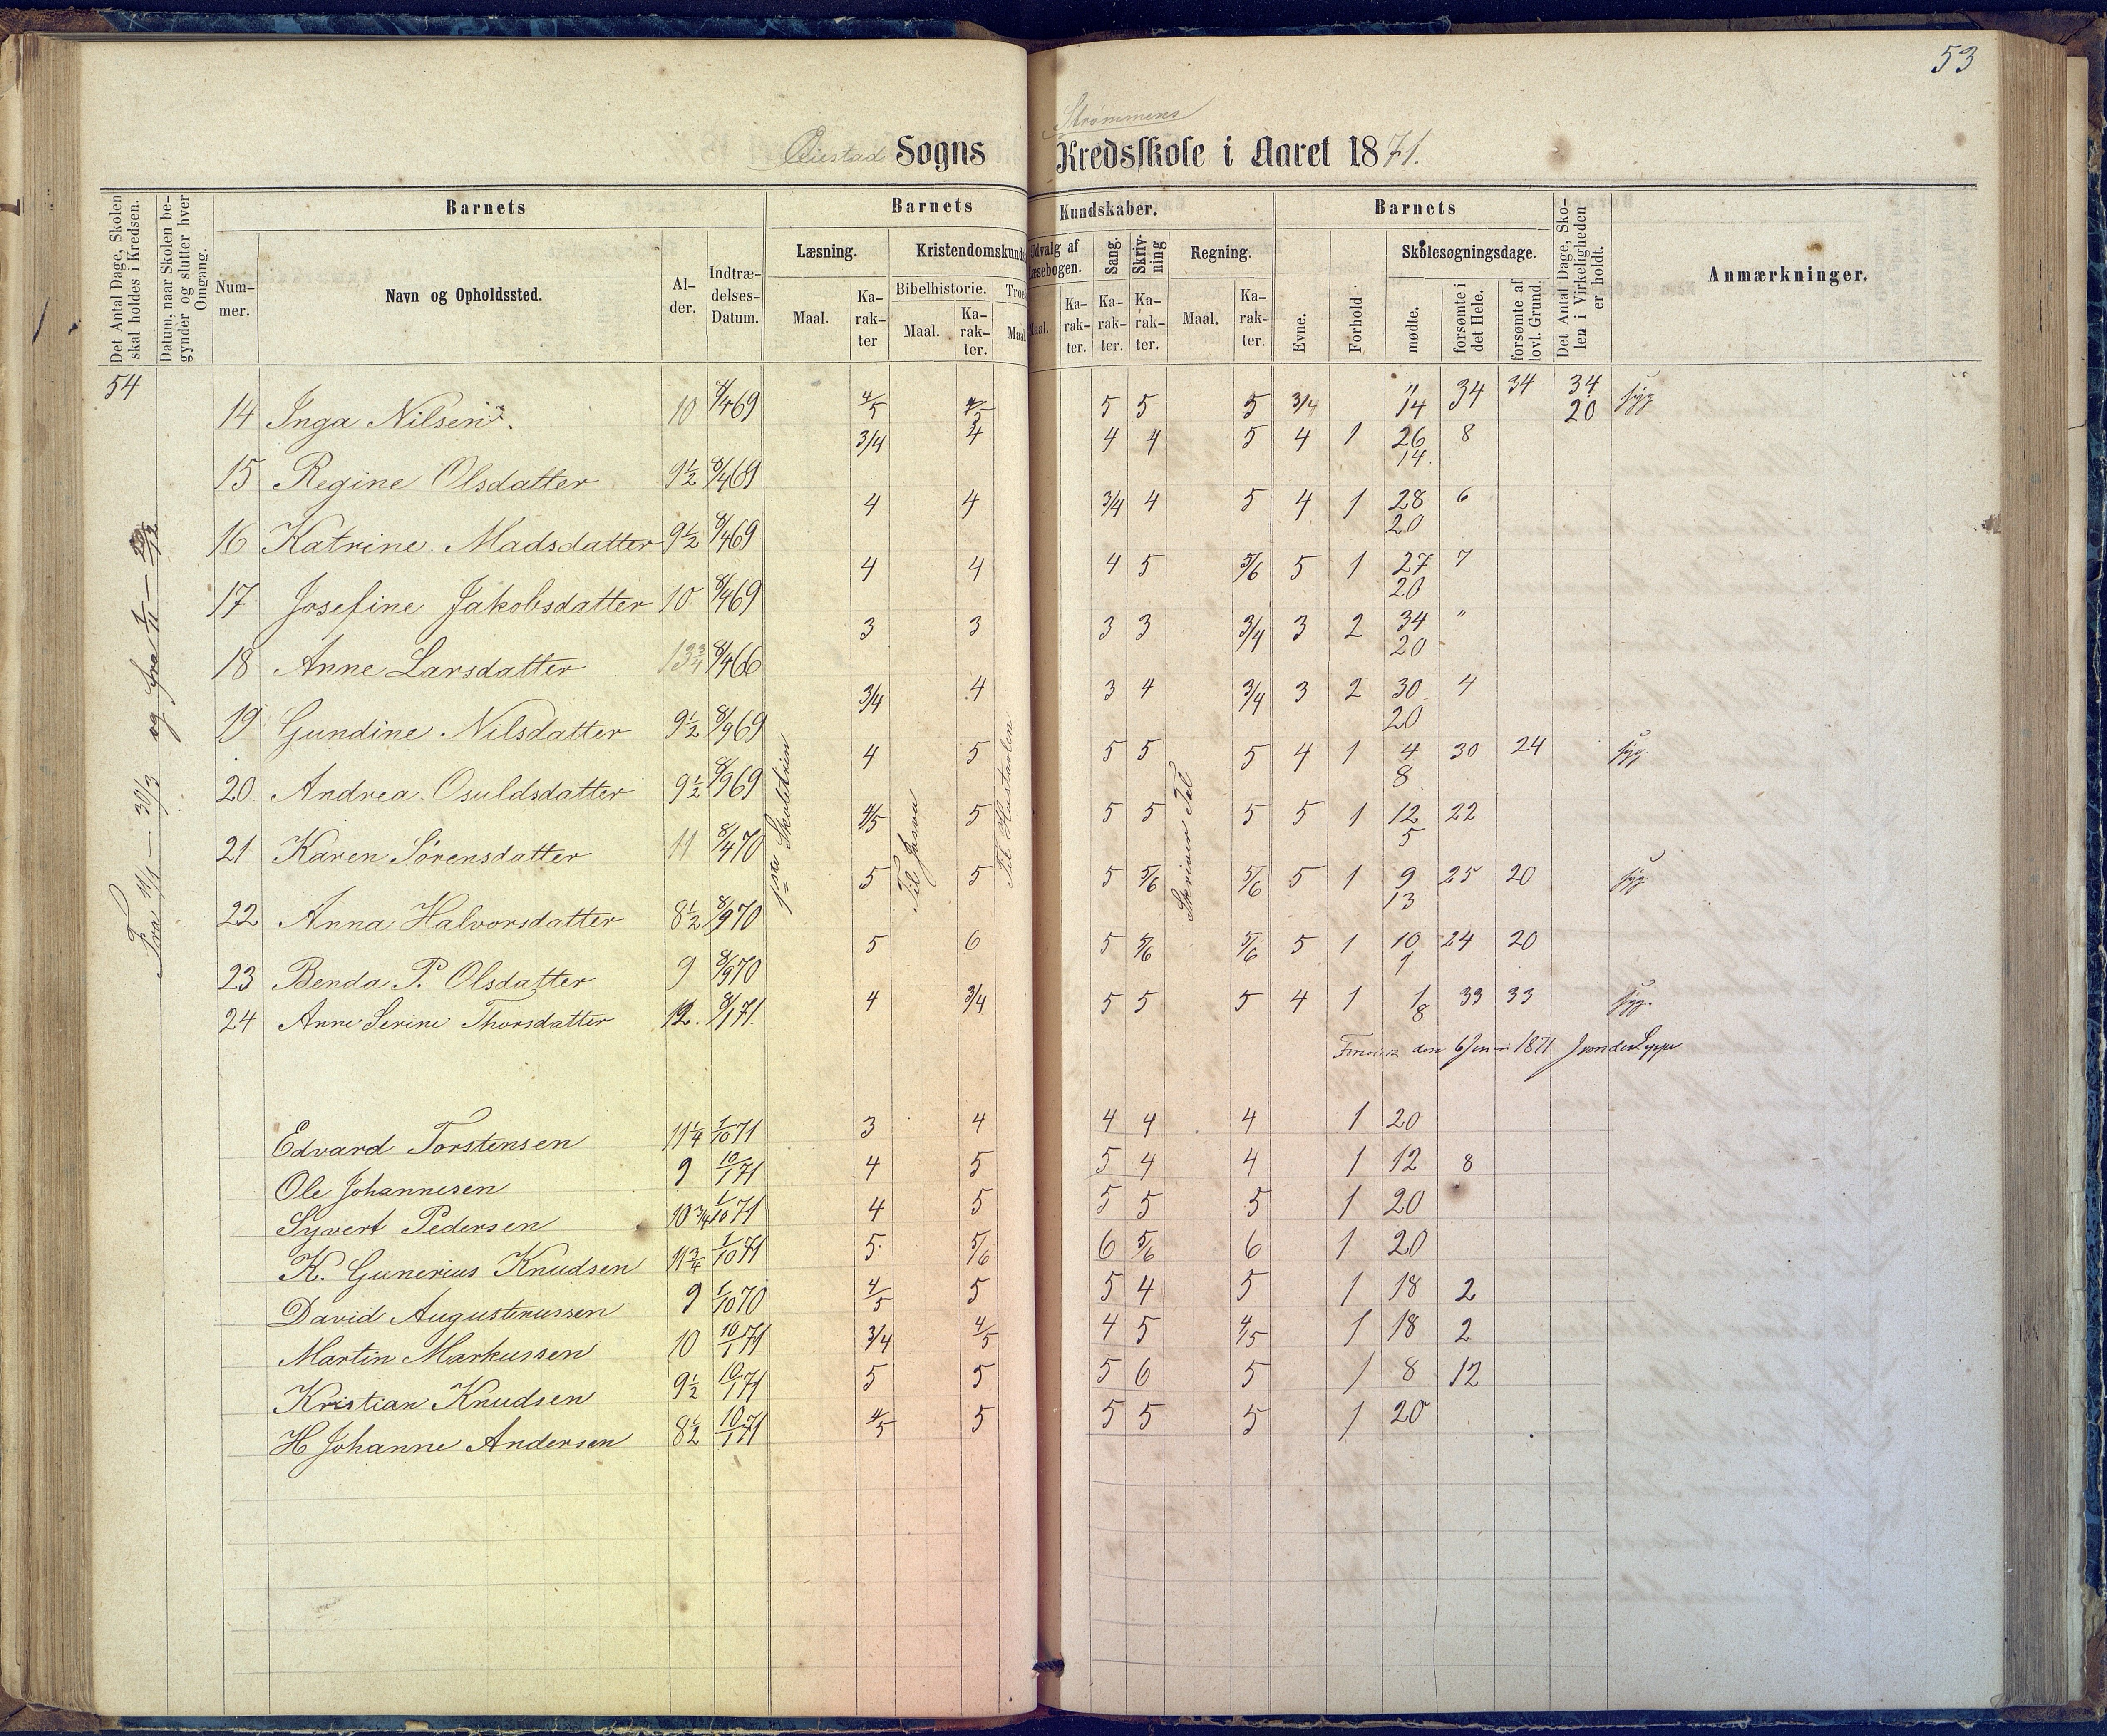 53
Strømmens
Øiestad Sogns Kredsskole i Aaret 1871.
Det Antal Dage, Skolen skal holdes i Kredsen.
Datum, naar Skolen begynder og slutter hver Omgang.
Barnets
Nummer.
Navn og Opholdssted.
Alder.
Indtrædelses-Datum.
Barnets Kundskaber.
Læsning.
Maal.
Karakter
Kristendomskund
Bibelhistorie.
Maal.
Karakter.
Troes
Maal
Udvalg af Læsebogen.
Maal.
Karakter.
Sang.
Karakter.
Skrivning
Karakter.
Regning.
Maal.
Karakter.
Barnets
Evne.
Forhold
Skolesøgningsdage.
mødte.
forsømte i det Hele.
forsømte af lovl. Grund.
Det Antal Dage, Skolen i Virkeligheden er holdt.
Anmærkninger.
54
Fra 11/1 — 30/3 og fra
1ste Skoletrin
Til Josva
Til Hustavlen
Skriver Tal
14 Inga Nilsen 10 8/4 69 4/5 4/5 5 5 5 3/4 " 14 34 34 34 20 syg
15 Regine Olsdatter 9½ 8/4 69 3/4 4 4 4 5 4 1 26 14 8
16 Katrine Madsdatter 9½ 8/4 69 4 4 3/4 4 5 4 1 28 20 6
17 Josefine Jakobsdatter 10 8/4 69 4 4 4 5 5/6 5 1 27 20 7
18 Anne Larsdatter 13¾ 8/4 66 3 3 3 3 3/4 3 2 34 20 "
19 Gundine Nilsdatter 9½ 8/9 69 3/4 4 3 4 3/4 3 2 30 20 4
20 Andrea Osuldsdatter 9½ 8/9 69 4 5 5 5 5 4 1 4 8 30 24 syg.
21 Karen Sørensdatter 11 8/4 70 4/5 5 5 5 5 5 1 12 5 22
22 Anna Halvorsdatter 8½ 8/9 70 5 5 5 5/6 5/6 5 1 9 13 25 20 syg
23 Benda P. Olsdatter 9 8/9 70 5 6 5 5/6 5/6 5 1 10 1 24 20
24 Anne Serine Thorsdatter 12. 8/1 71. 4 3/4 5 5 5 4 1 1 8 33 33 syg.
den 6 1871
Edvard Torstensen 11¼ 1/10 71 3 4 4 4 4 1 20
Ole Johannesen 9 10/1 71 4 5 5 4 4 1 12 8
Syvert Pedersen 10¾ 1/10 71 4 5 5 5 5 1 20
K. Gunerius Knudsen 11¾ 1/10 71 5 5/6 6 5/6 6 1 20
David Augustinussen 9 1/10 70 4/5 5 5 4 5 1 18 2
Martin Markussen 10 10/1 71 3/4 4/5 4 5 4/5 1 18 2
Kristian Knudsen 9½ 10/1 71 5 5 5 6 5 1 8 12
H Johanne Andersen 8½ 10/1 71 4/5 5 5 5 5 1 20